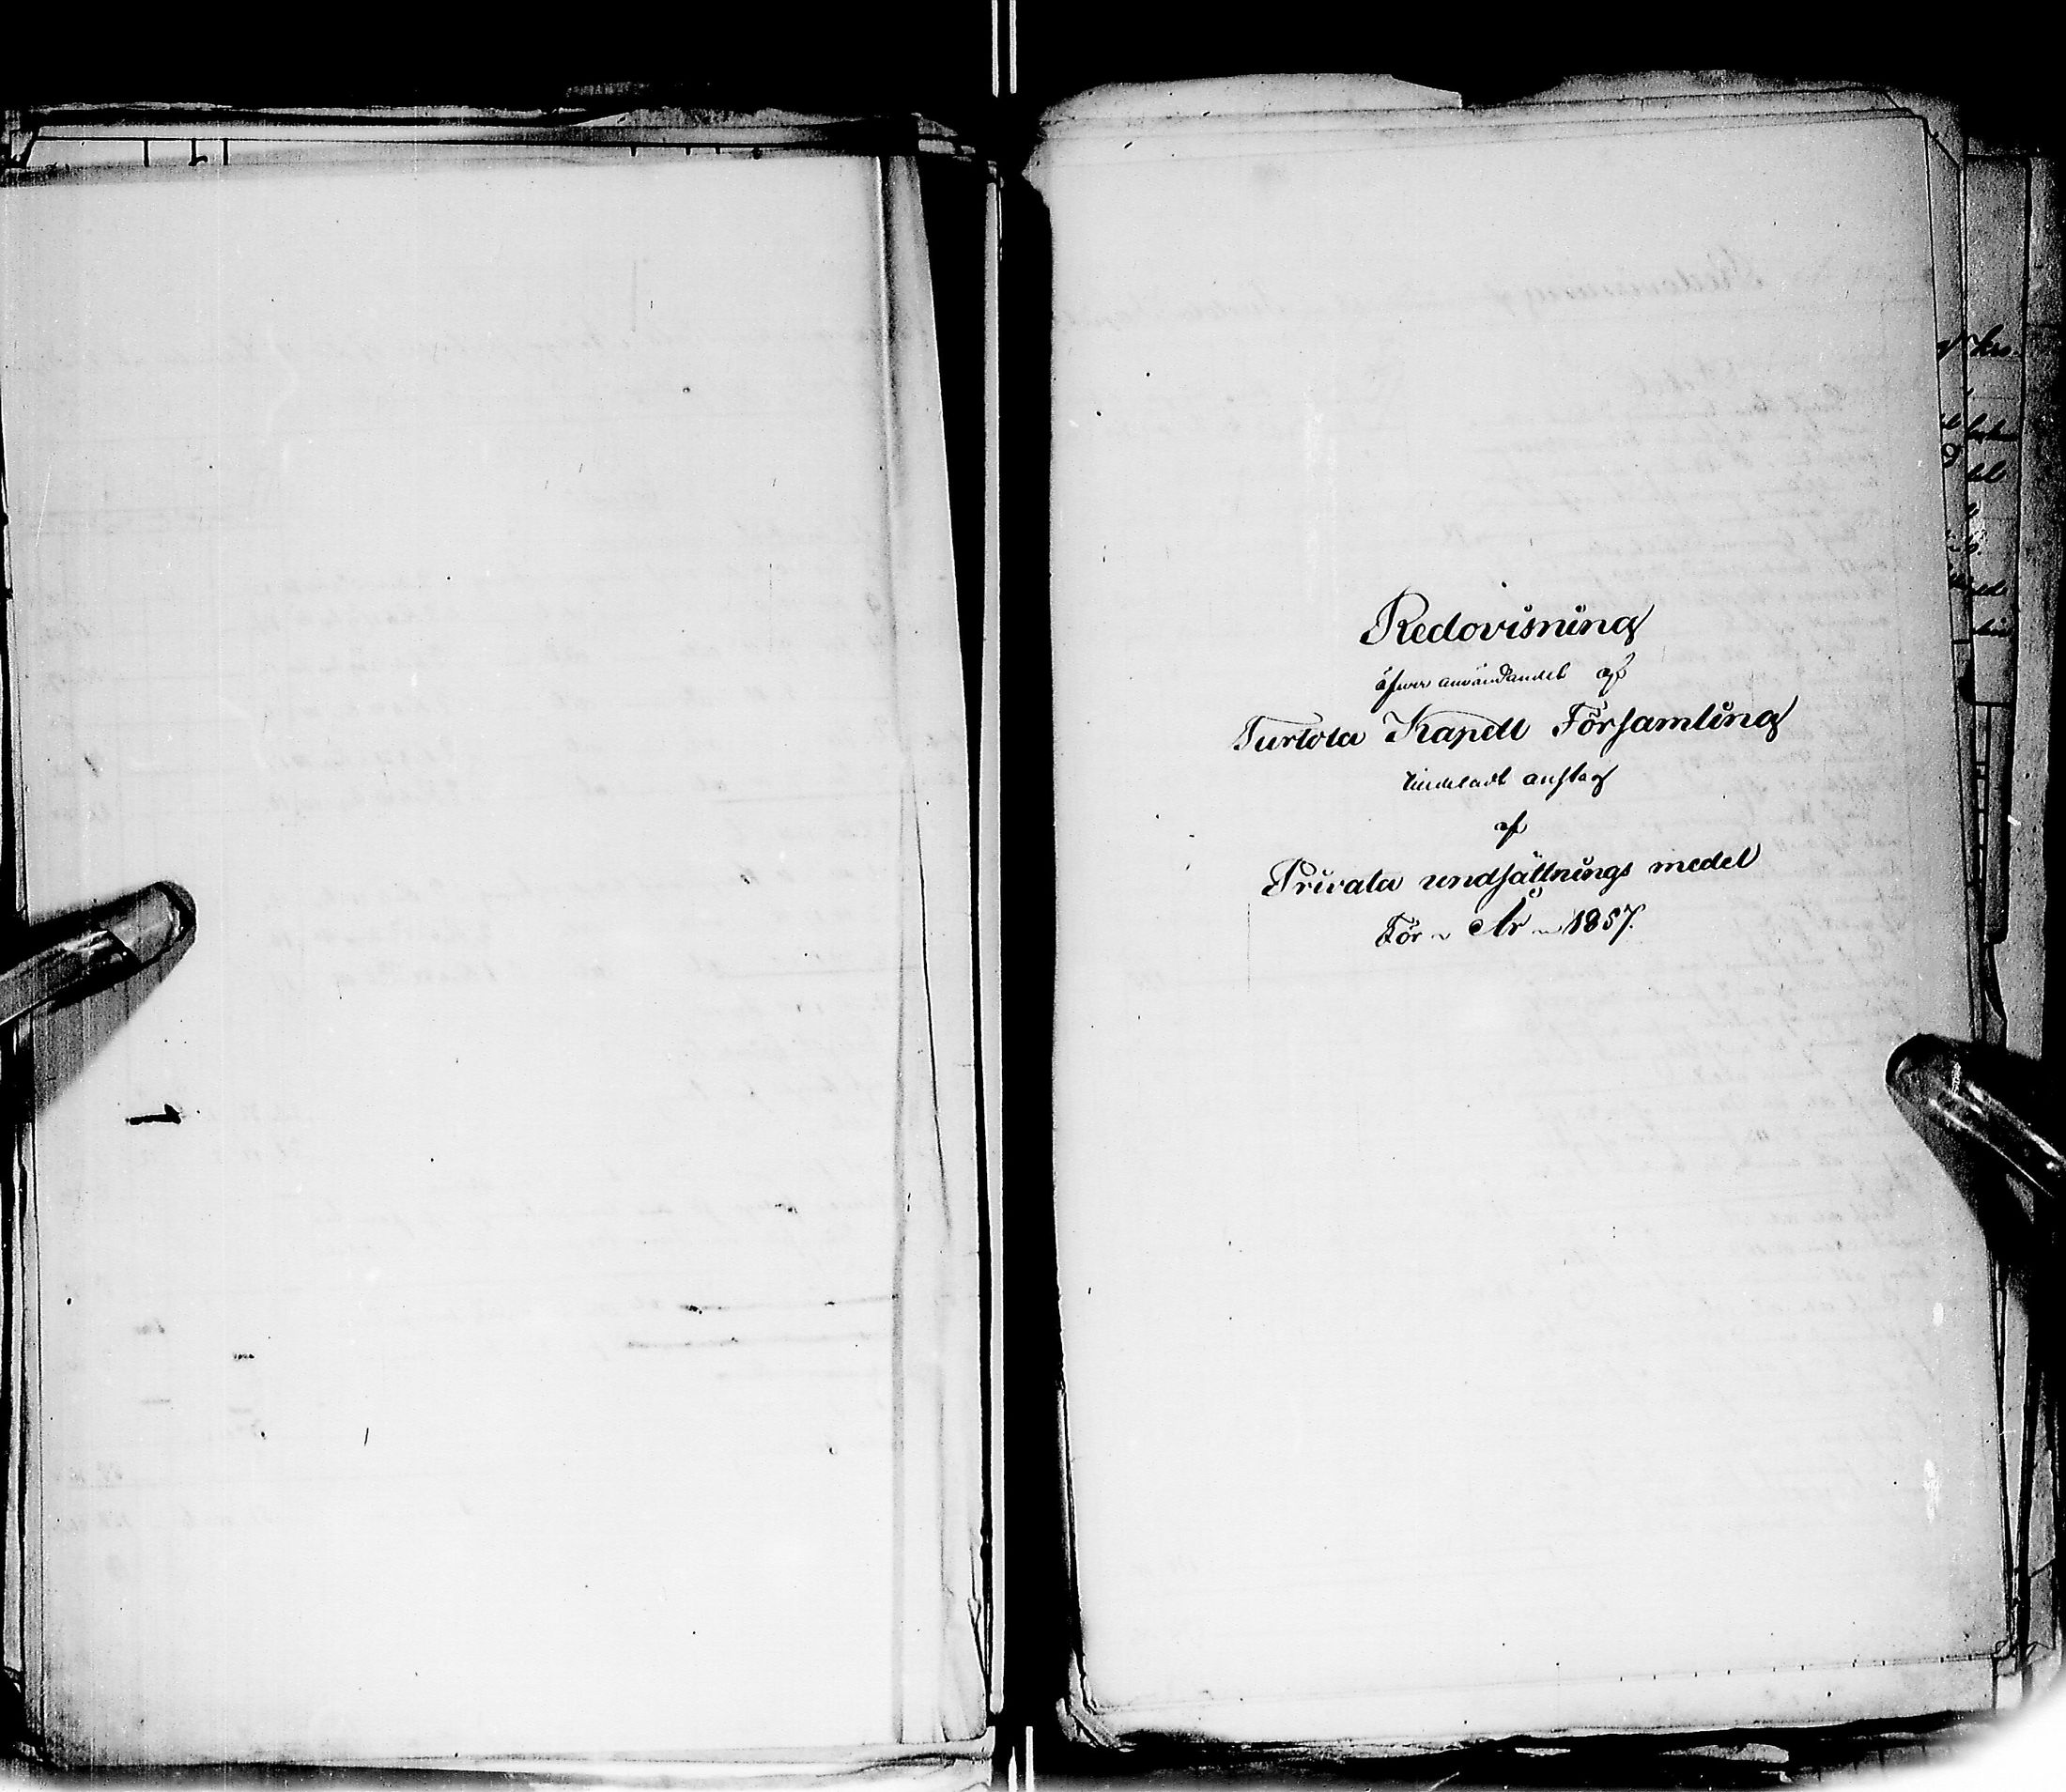 Redovisning
öfwer användandet af
Turtola Kapell Församling
tilldeladt anslag
af
Privata undsättnings medel
För År 1857.